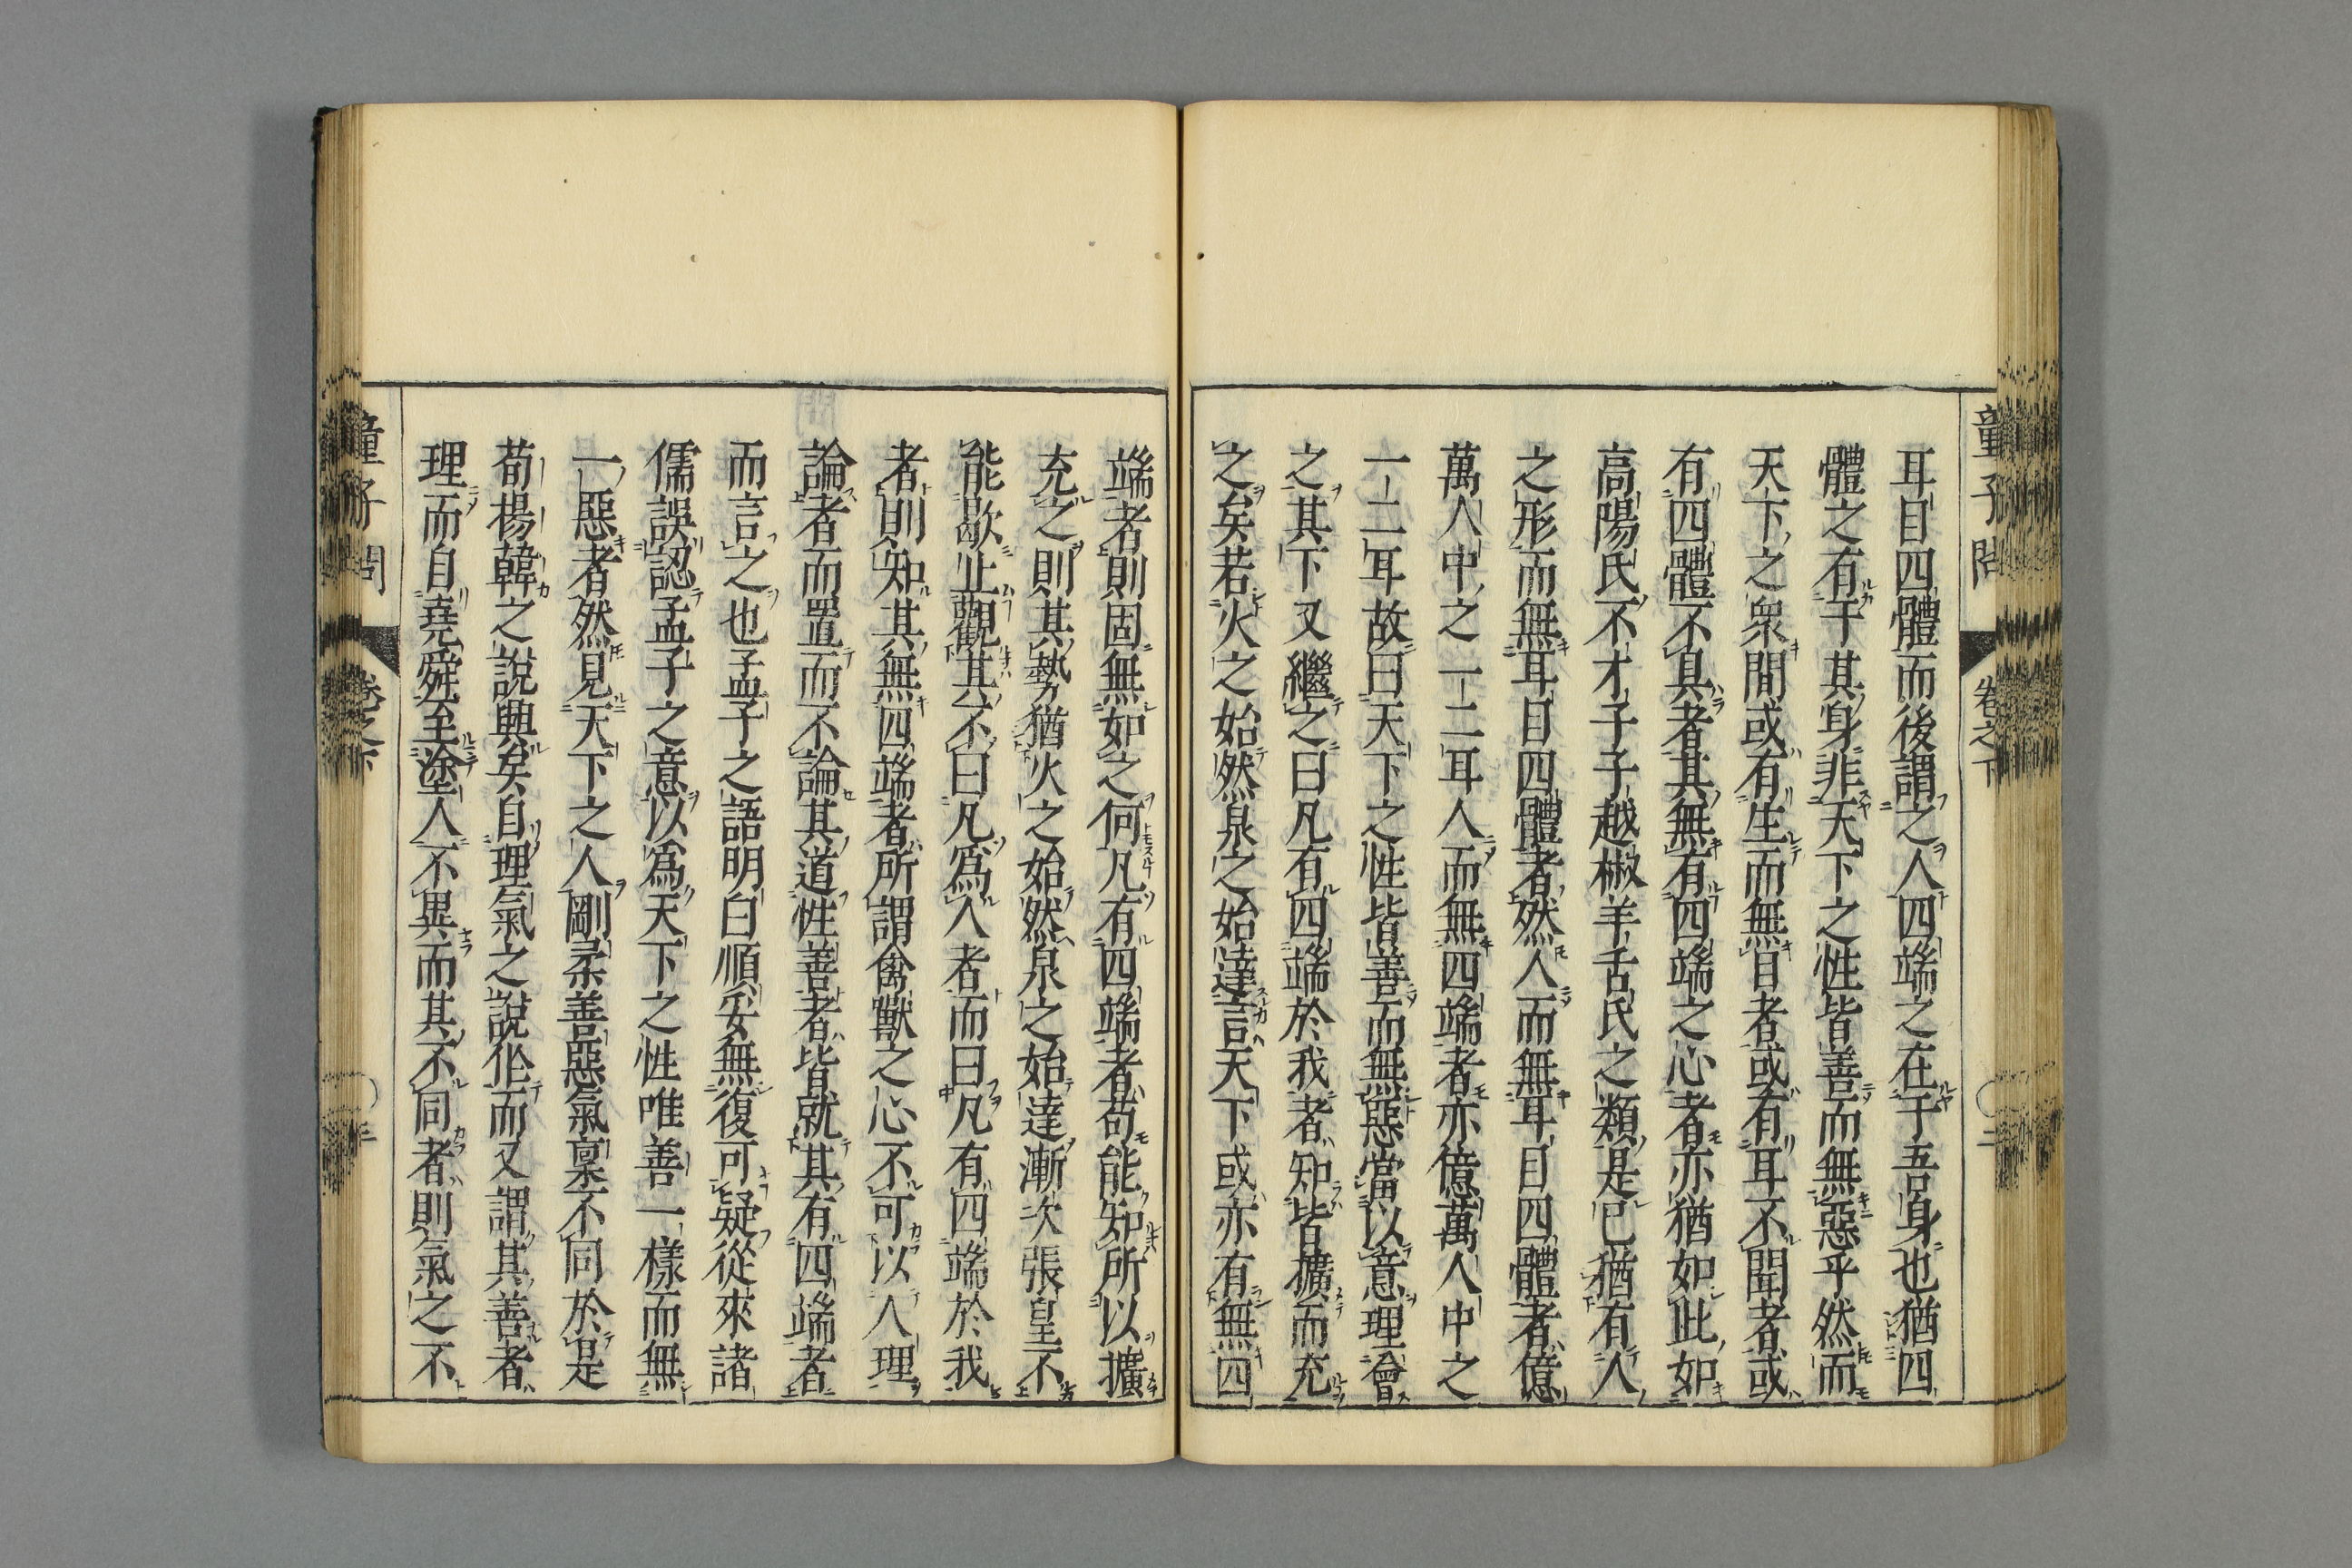 童子問 卷之下 二
耳目四體而後謂之人四端之在于吾身也猶四
體之有于其身非天下之性皆善而無惡乎然而
天下之衆間或有生而無目者或有耳不聞者或
有四體不具者其無有四端之心者亦猶如此如
高陽氏不才子子越椒羊舌氏之類是已猶有人
之形而無耳目四體者然人而無耳目四體者億
萬人中之一二耳人而無四端者亦億萬人中之
一二耳故曰天下之性皆善而無惡當以意理會
之其下又繼之曰凡有四端於我者知皆擴而充
之矣若火之始然泉之始達言天下或亦有無四
端者則固無如之何凡有四端者苟能知所以擴
充之則其勢猶火之始然泉之始達漸次張皇不
能歇止觀其不曰凡爲人者而曰凡有四端於我
者則知其無四端者所謂禽獸之心不可以人理
論者而置而不論其道性善者皆就其有四端者
而言之也孟子之語明白順妥無復可疑從來諸
儒誤認孟子之意以爲天下之性唯善一樣而無
一惡者然見天下之人剛柔善惡氣稟不同於是
荀楊韓之說興矣自理氣之說作而又謂其善者
理而自堯舜至塗人不異而其不同者則氣之不
童子問 卷之下 三